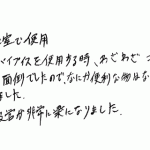 室で使用
バイアイスを使用する時、わざわざ
面倒でしたので、なにか便利な物はな
ました。
非常に楽になりました。